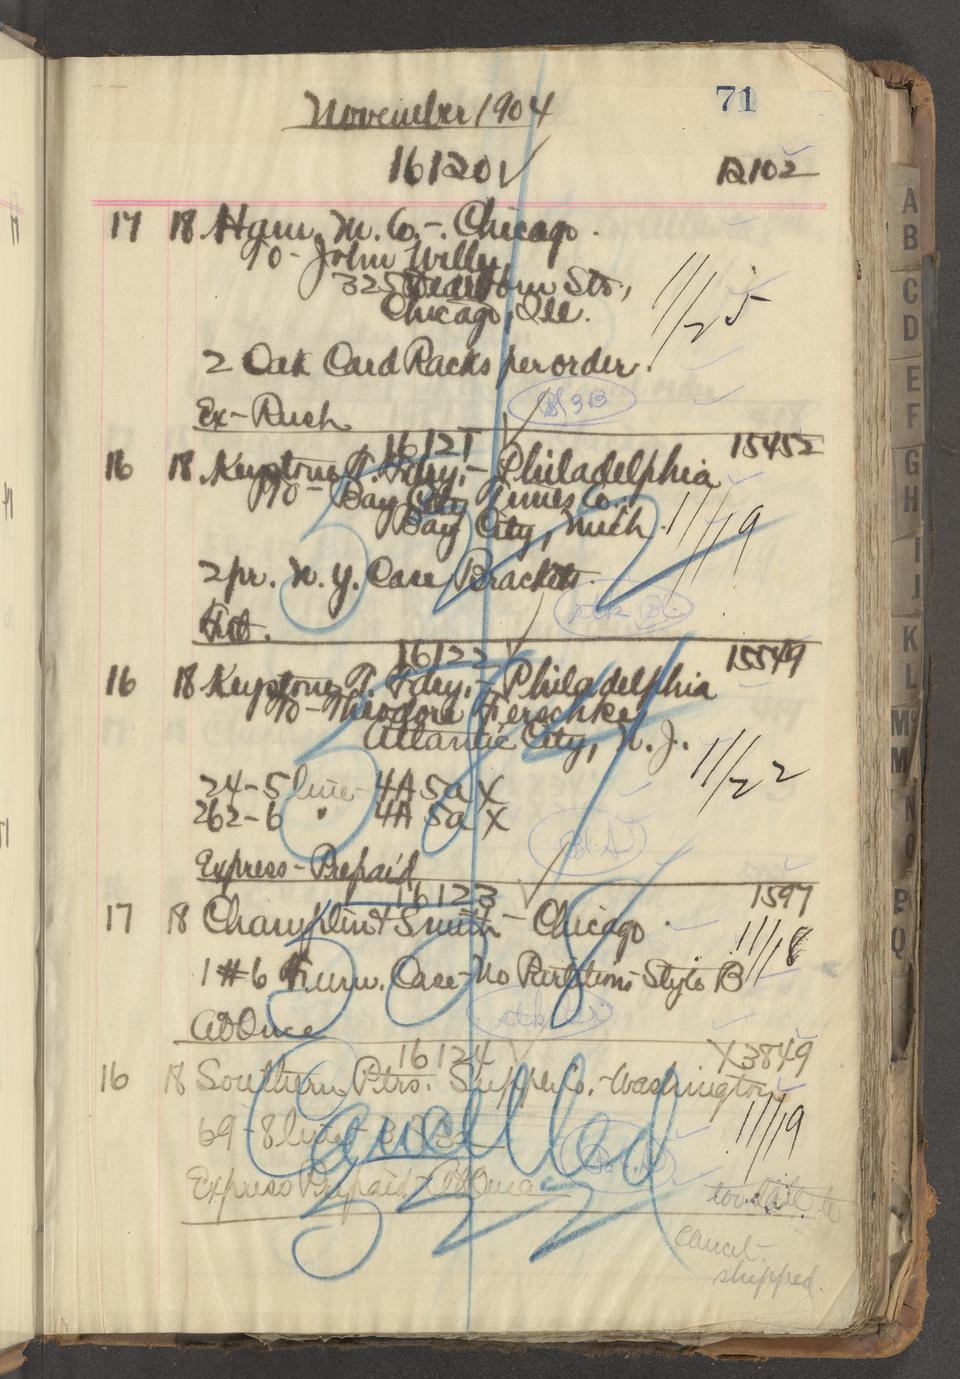 71
November 1904
16120 √ R102
17 18 Ham. M. Co. - Chicago.
To - John Willy
325 Dearborn Str.,
Chicago, Ill.
11/25
2 Oak Card Racks per order.
3B
Ex - Rush
16121 √ 15452
16 18 Keystone T. Fdry. - Philadelphia
To - Bay City Times Co.,
Bay City, Mich. 11/19
2 pr. N. Y. Case Brackets.
stk
Frt.
16122 √ 15549
16 18 Keystone T. Fdry. - Philadelphia
To - Theodore Gerschke,
Atlantic City, N. J.
11/22
24 - 5 line 4A 5a X
262 - 6 " 4A 5a X
Express - Prepaid
16123 √ 1597
17 18 Champlin & Smith - Chicago. 11/18
1 #6 Furn. Case - No Partitions Style B
stk
At Once
16124 √ X3849
16 18 Southern Ptrs. Supply Co. - Washington
11/19
69 - 8 line
Cancelled
Express Prepaid - At Once
too late to
cancel -
shipped.